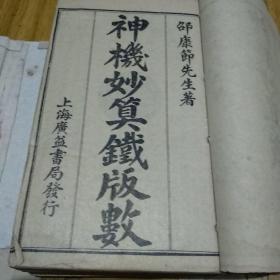 邵康節先生著
神機妙算鐵版數
上海廣益書局發行